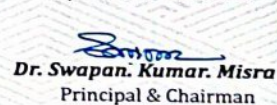 Dr. Swapan. Kumar. Misra
Principal & Chairman